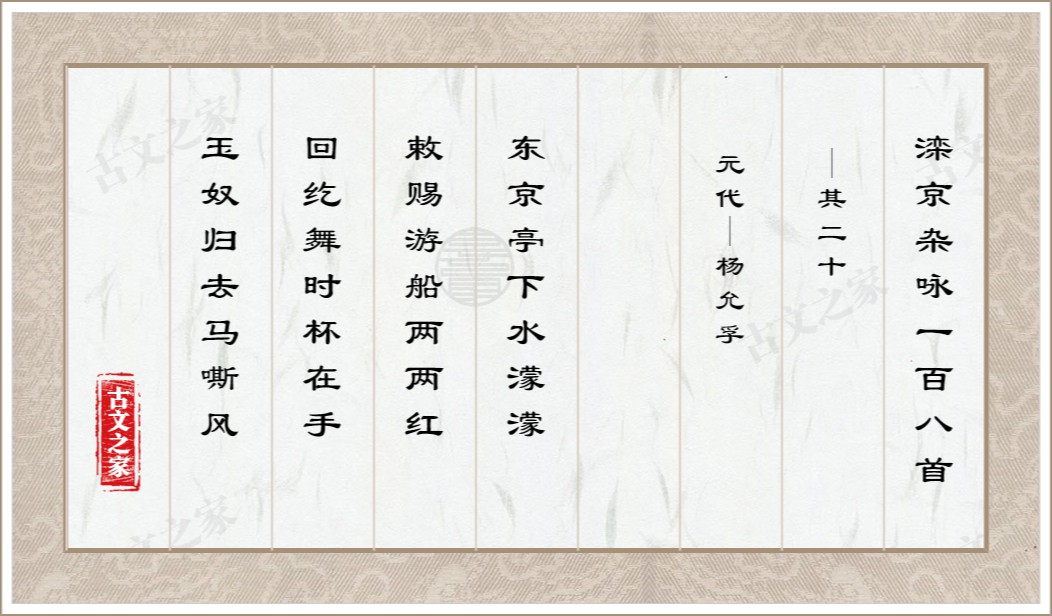 滦京杂咏一百八首
—其二十
元代—杨允孚
东京亭下水濛濛
敕赐游船两两红
回纥舞时杯在手
玉奴归去马嘶风
古文之家
古文之家
古文之家
古文之家